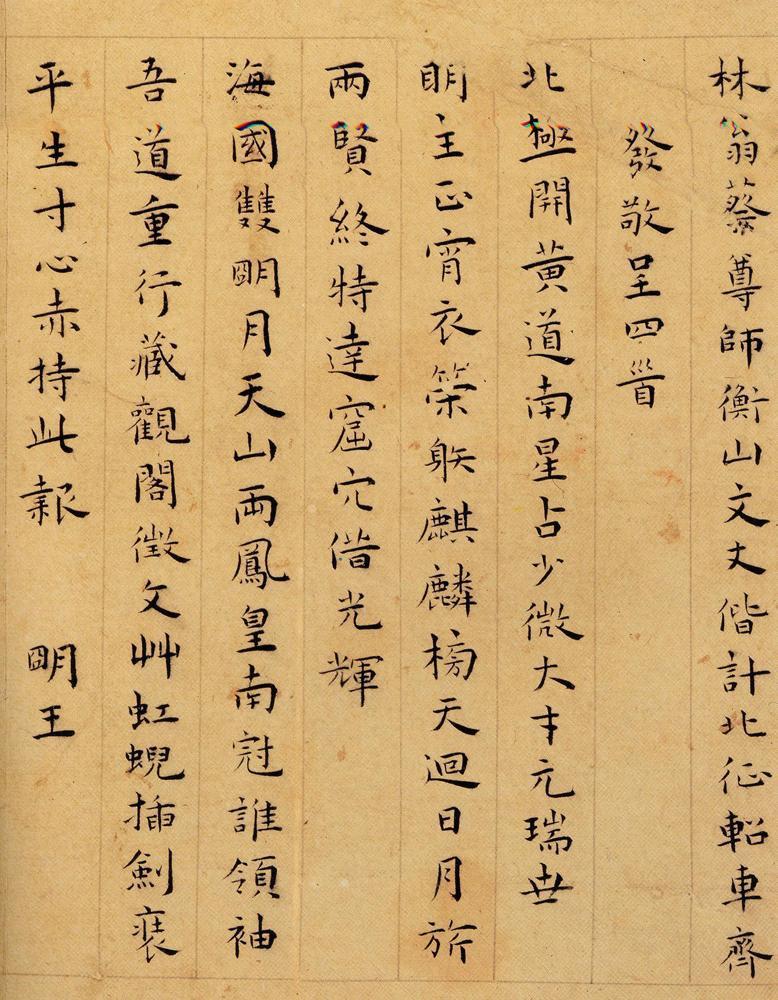 林翁蔡尊師衡山文丈偕計北征軺車齊
發敬呈四首
北極開黃道南星占少微大才元瑞世
眀主正宵衣策䠶麒麟榜天迴日月旂
兩賢終特達窟穴借光輝
海國雙朙月天山兩鳳皇南冠誰領袖
吾道重行藏觀閣徵文艸虹蜺插劍裝
平生寸心赤持此報 朙王